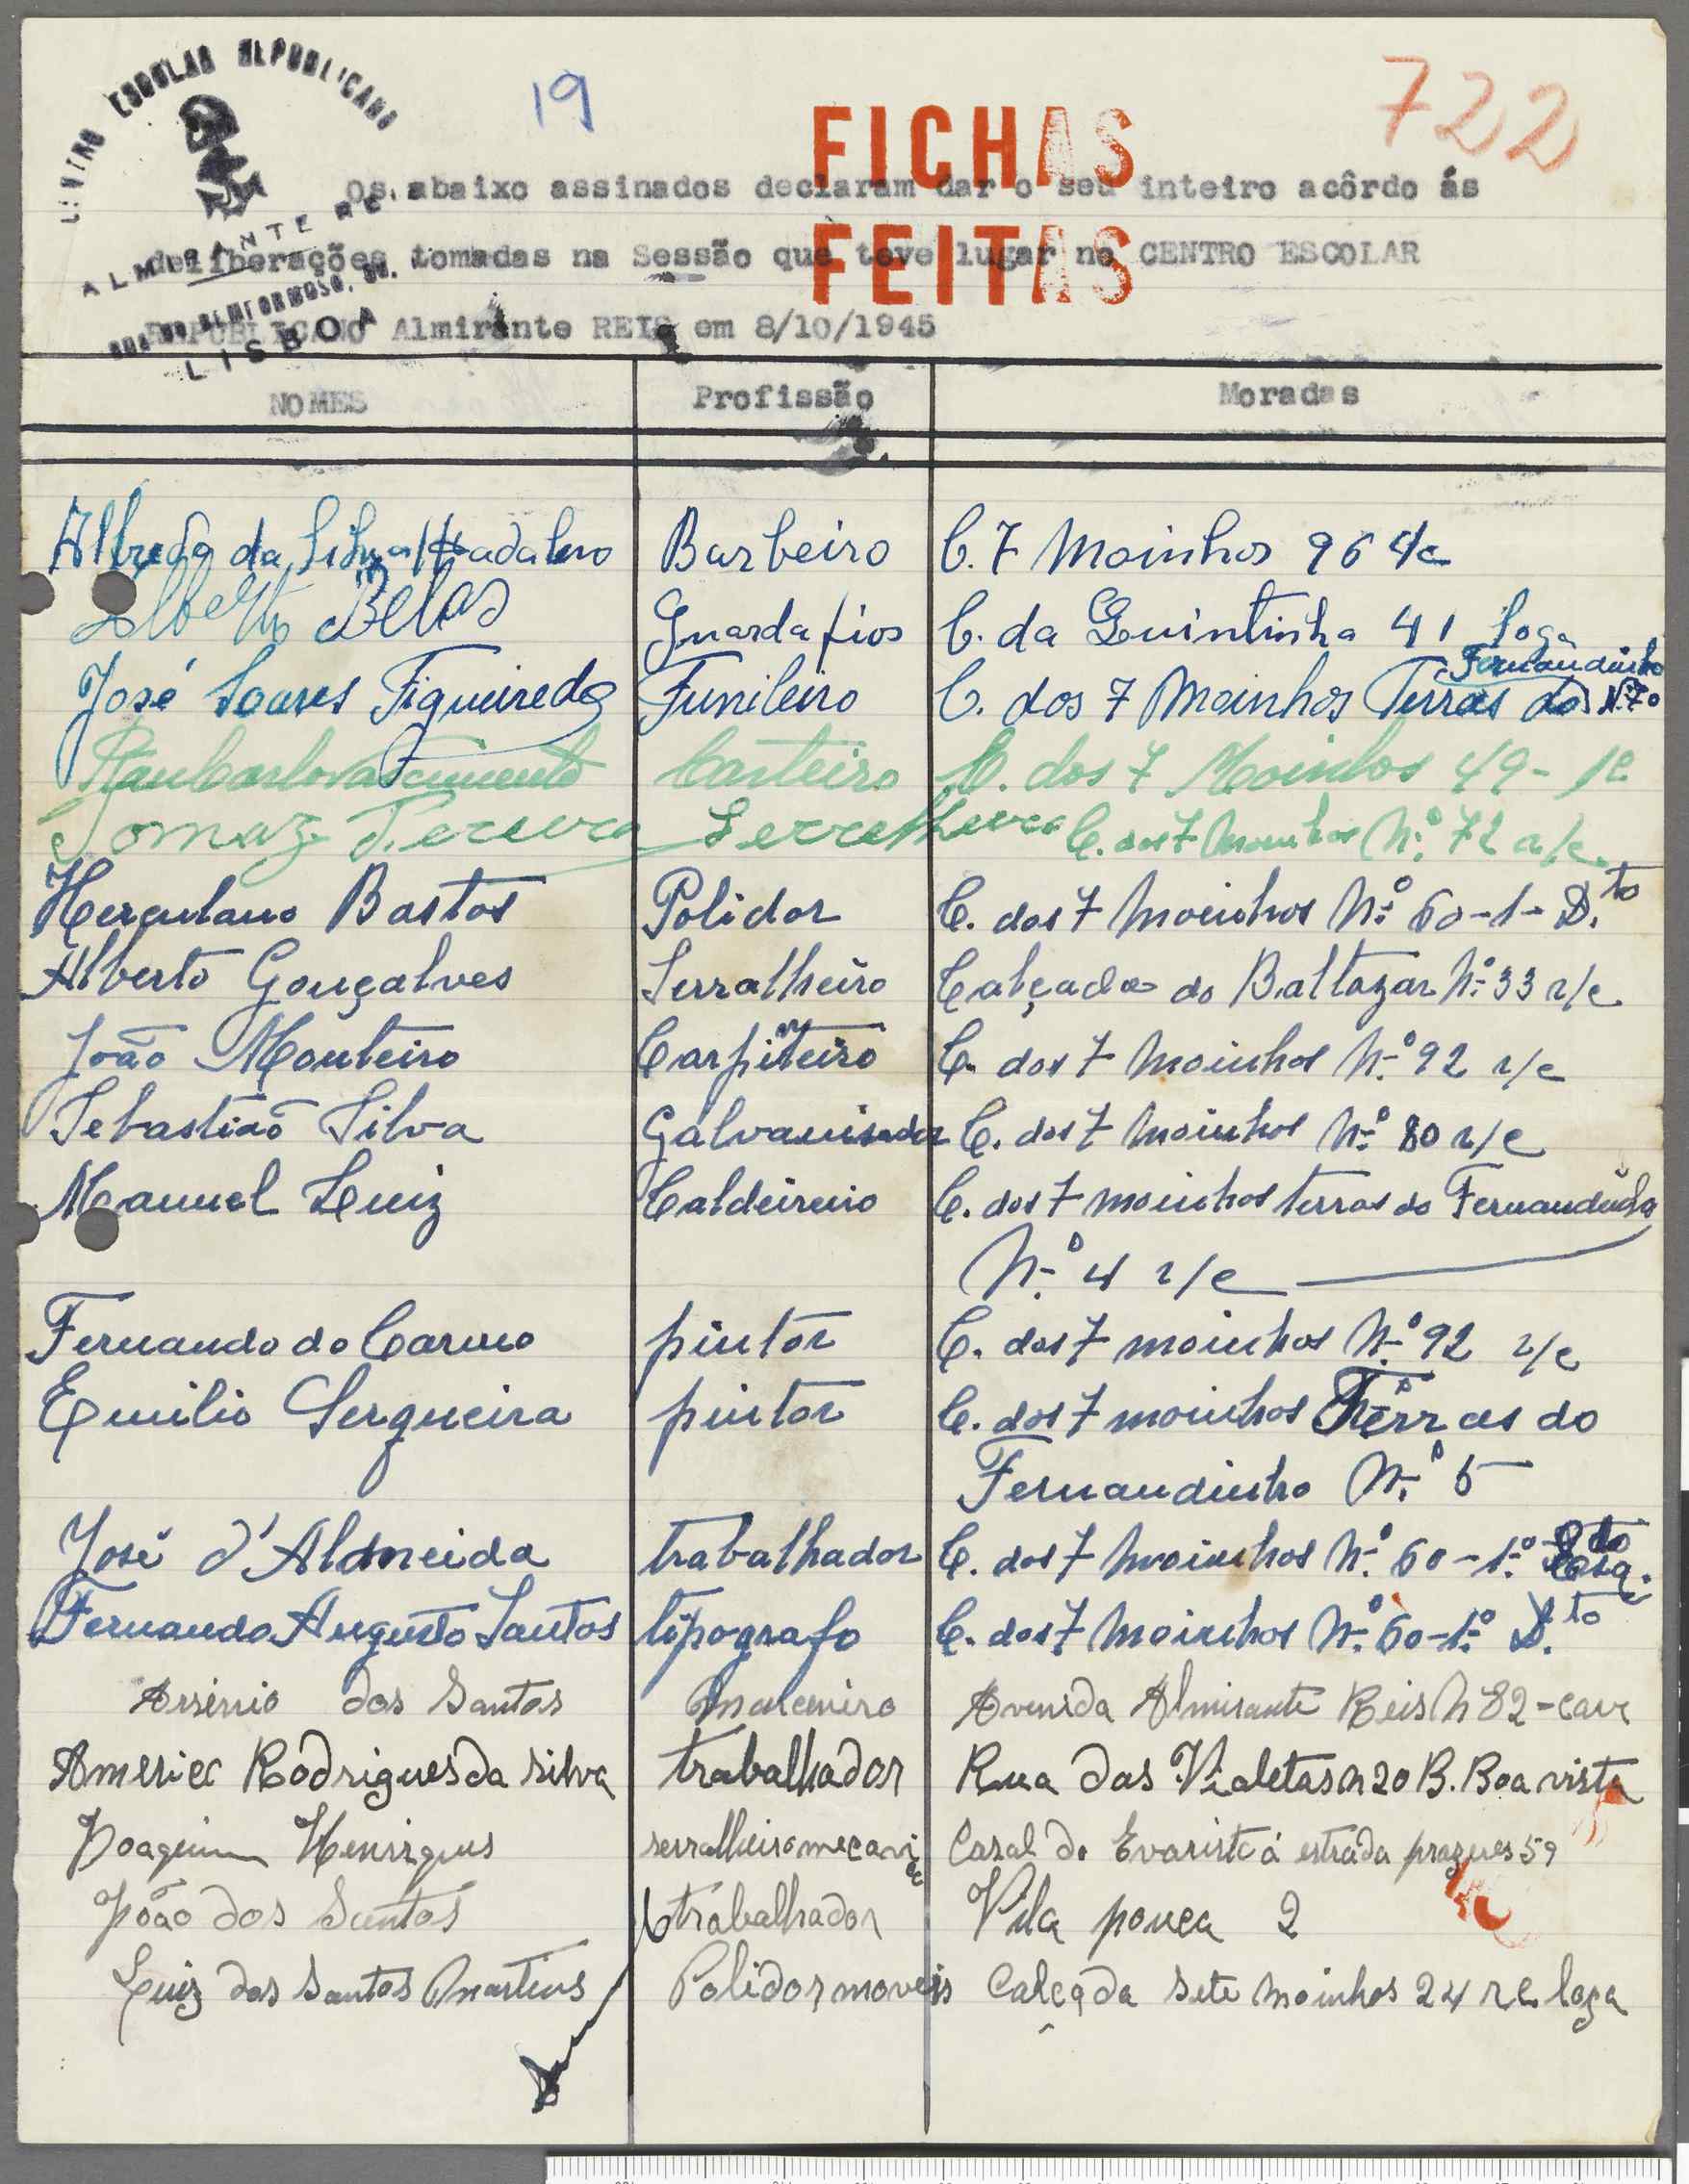 CENTRO ESCOLAR REPUBLICANO
ALMIRANTE REIS
LISBOA
19
722
FICHAS
FEITAS
Os abaixo assinados declaram dar o seu inteiro acôrdo ás
deliberações tomadas na Sessão que teve lugar no CENTRO ESCOLAR
REPUBLICANO Almirante REIS em 8/10/1945
NOMES Profissão Moradas
Alfredo da Silva Barbeiro C. 7 Moinhos 96 r/c
Alberto Belas Guarda fios C. da Quintinha 41 loga
Fernandinho
José Soares Figueiredo Funileiro C. dos 7 Moinhos Terras do Nº 70
Nascimento Carteiro C. dos 7 Moinhos 49 - 1º
Tomaz Pereira Serralheiro C. dos 7 Moinhos Nº 72 r/c.
Herculano Bastos Polidor C. dos 7 Moinhos Nº 60-1- D.to
Alberto Gonçalves Serralheiro Calçada do Baltazar Nº 33 r/c
João Monteiro Carpinteiro C. dos 7 Moinhos Nº 92 r/c
Sebastião Silva Galvanisador C. dos 7 Moinhos Nº 80 r/c
Manuel Luiz Caldeireiro C. dos 7 moinhos terras do Fernandinho
Nº 4 r/c
Fernando do Carmo pintor C. dos 7 moinhos Nº 92 r/c
Emilio Serqueira pintor C. dos 7 moinhos Terras do
Fernandinho Nº 5
José d'Almeida trabalhador C. dos 7 Moinhos Nº 60-1º Esq.
Fernando Augusto Santos tipografo C. dos 7 Moinhos Nº 60-1º D.to
Arsénio dos Santos Marceneiro Avenida Almirante Reis N 82-cave
Americo Rodrigues da Silva trabalhador Rua das Violetas N 20 B. Boa vista
Joaquim Henriques serralheiro mecanico Casal do Evaristo á estrada 59
João dos Santos trabalhador Vila pouca 2
Luiz dos Santos Martins Polidor moveis Calçada Sete Moinhos 24 r c. loga